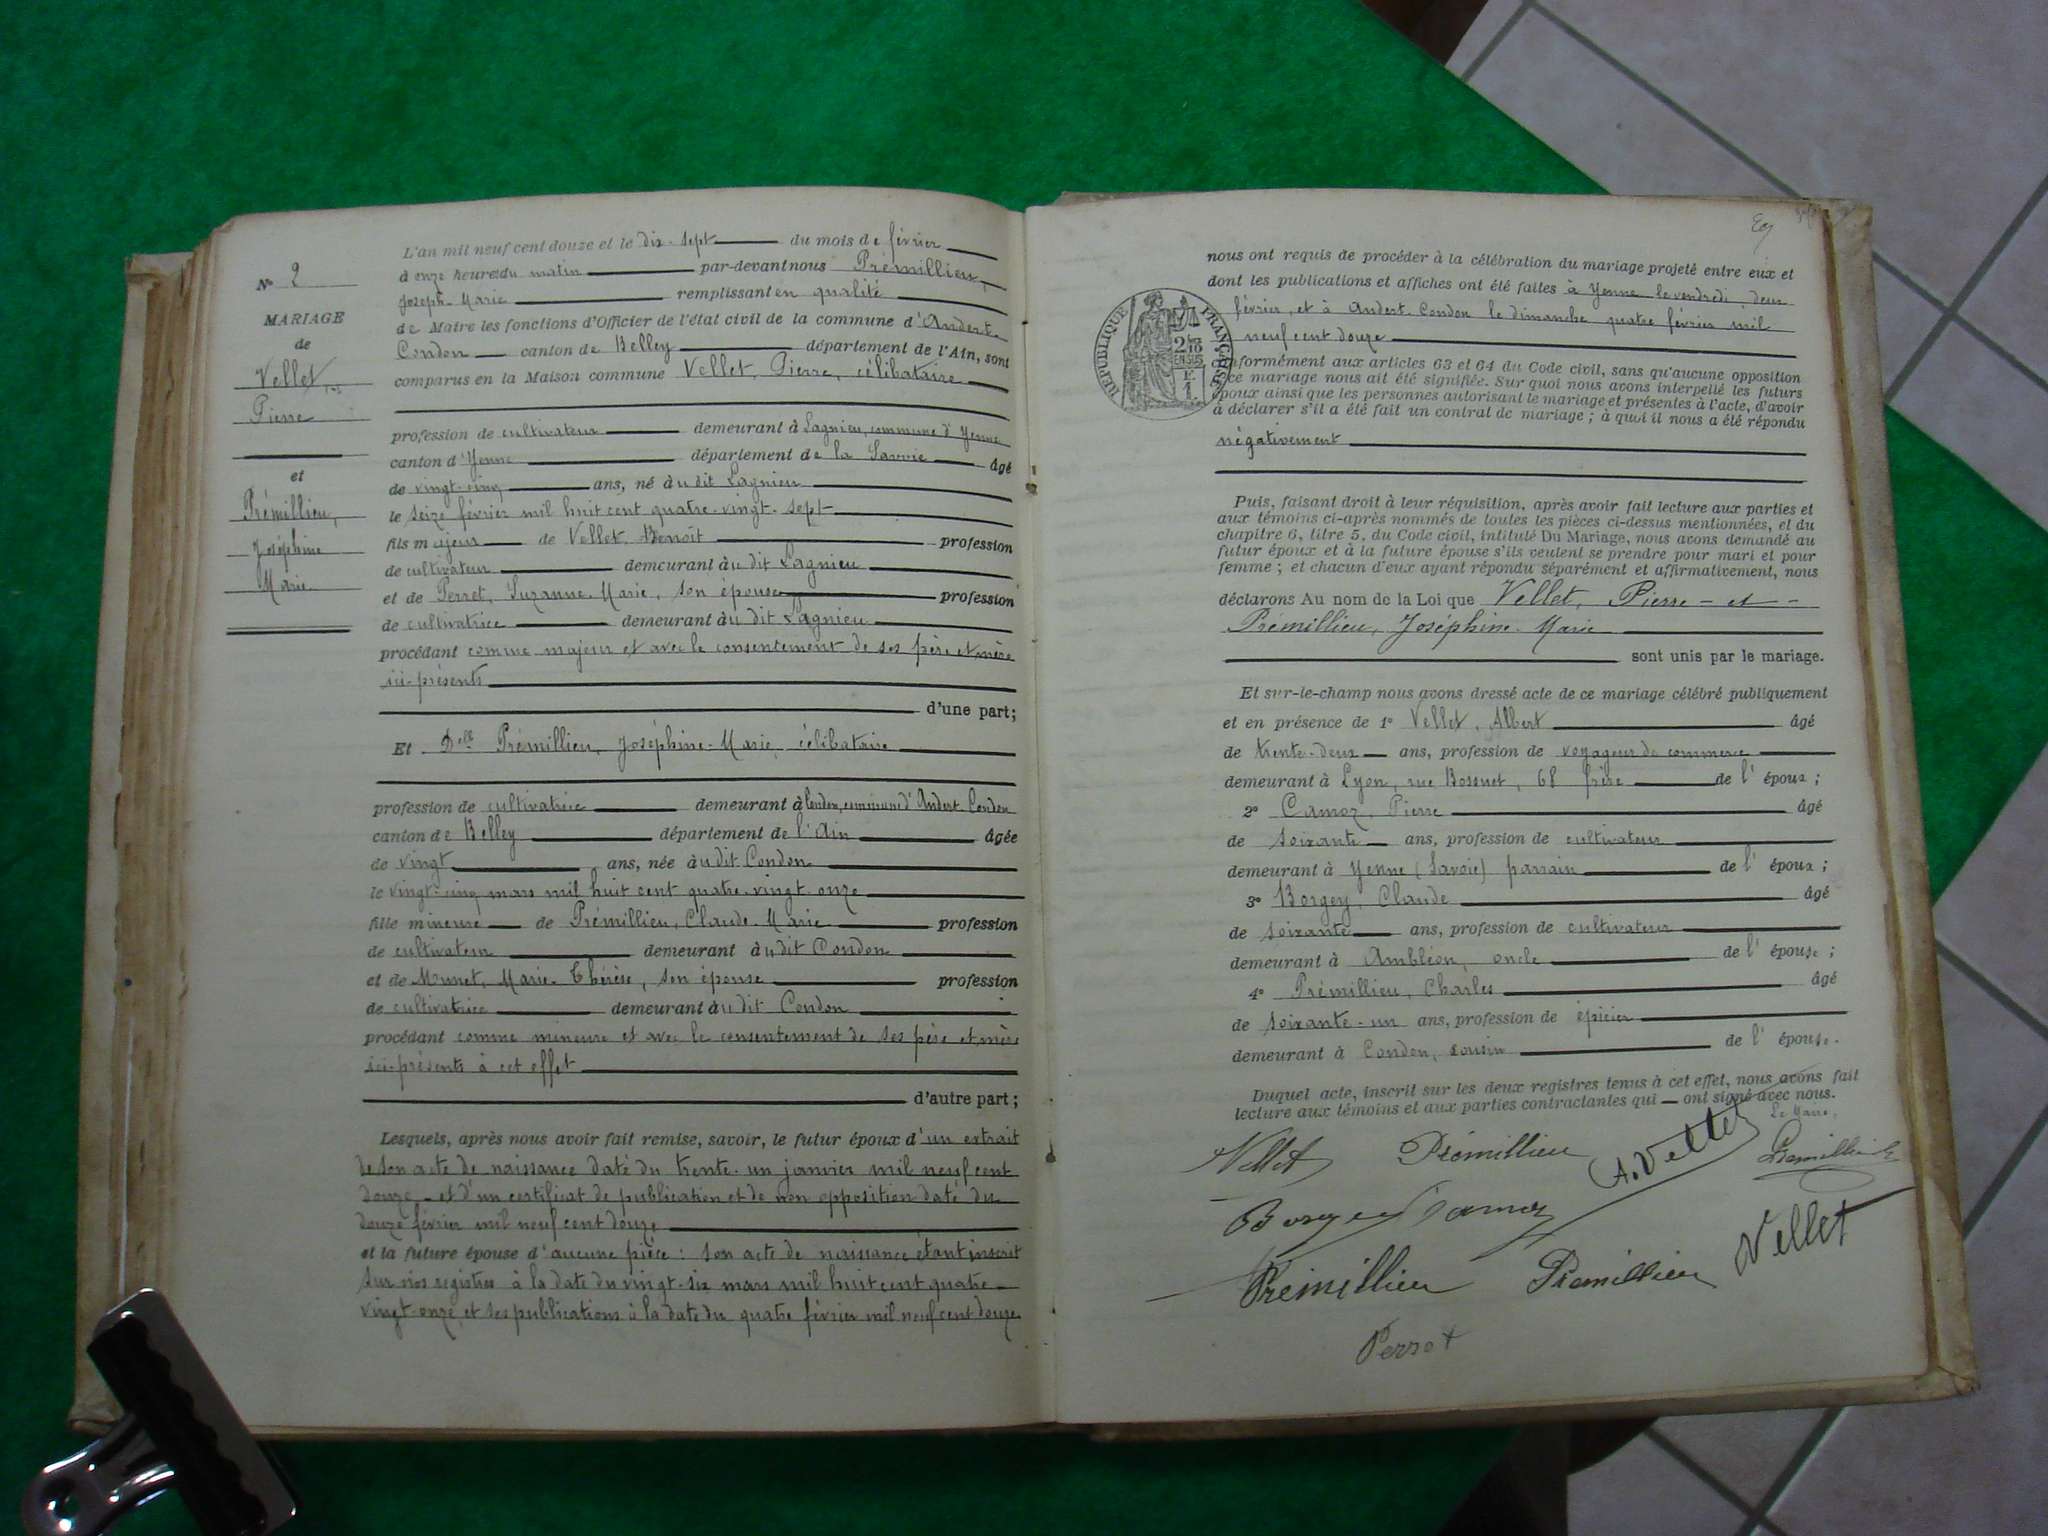 N° 2
MARIAGE
de
Vellet
Pierre
et
Prémillieu,
Joséphine
Marie
L'an mil neuf cent douze et le dix-sept du mois de février
à onze heure du matin par-devant nous Prémillieu,
Joseph-Marie remplissant en qualité
de Maire les fonctions d'Officier de l'état civil de la commune d'Andert-
Condon canton de Belley département de l'Ain, sont
comparus en la Maison commune Vellet, Pierre, célibataire
profession de cultivateur demeurant à Lagnieu, commune d'Yenne
canton d'Yenne département de la Savoie âgé
de vingt-cinq ans, né à udit Lagnieu
le seize février mil huit cent quatre-vingt-sept
fils majeur de Vellet Benoît profession
de cultivateur demeurant à udit Lagnieu
et de Perret, Suzanne-Marie, son épouse profession
de cultivatrice demeurant à udit Lagnieu
procédant comme majeur et avec le consentement de ses père et mère
ici-présents
d'une part;
Et Delle Prémillieu, Joséphine-Marie, célibataire
profession de cultivatrice demeurant à Condon, commune d'Andert-Condon
canton de Belley département de l'Ain âgée
de vingt ans, née à udit Condon
le vingt-cinq mars mil huit cent quatre-vingt-onze
fille mineure de Prémillieu, Claude-Marie profession
de cultivateur demeurant à udit Condon
et de Mounet, Marie-Thérèse, son épouse profession
de cultivatrice demeurant à udit Condon
procédant comme mineure et avec le consentement de ses père et mère
ici-présents à cet effet
d'autre part;
Lesquels, après nous avoir fait remise, savoir, le futur époux d'un extrait
de son acte de naissance daté du trente-un janvier mil neuf cent
douze et d'un certificat de publication et de non opposition daté du
douze février mil neuf cent douze
et la future épouse d'aucune pièce: son acte de naissance étant inscrit
sur nos registres à la date du vingt-six mars mil huit cent quatre-
vingt-onze et ses publications à la date du quatre février mil neuf cent douze
nous ont requis de procéder à la célébration du mariage projeté entre eux et
dont les publications et affiches ont été faites à Yenne le vendredi, deux
février, et à Andert-Condon le dimanche quatre février mil
neuf cent douze
REPUBLIQUE FRANÇAISE
conformément aux articles 63 et 64 du Code civil, sans qu'aucune opposition
à ce mariage nous ait été signifiée. Sur quoi nous avons interpellé les futurs
époux ainsi que les personnes autorisant le mariage et présentes à l'acte, d'avoir
à déclarer s'il a été fait un contrat de mariage; à quoi il nous a été répondu
négativement
Puis, faisant droit à leur réquisition, après avoir fait lecture aux parties et
aux témoins ci-après nommés de toutes les pièces ci-dessus mentionnées, et du
chapitre 6, titre 5, du Code civil, intitulé Du Mariage, nous avons demandé au
futur époux et à la future épouse s'ils veulent se prendre pour mari et pour
femme; et chacun d'eux ayant répondu séparément et affirmativement, nous
déclarons Au nom de la Loi que Vellet, Pierre - et -
Prémillieu, Joséphine-Marie
sont unis par le mariage.
Et sur-le-champ nous avons dressé acte de ce mariage célébré publiquement
et en présence de 1° Vellet, Albert âgé
de trente-deux ans, profession de voyageur de commerce
demeurant à Lyon, rue Bossuet, 68 frère de l'époux;
2° Camoz, Pierre âgé
de soixante ans, profession de cultivateur
demeurant à Yenne (Savoie) parrain de l'époux;
3° Borgey, Claude âgé
de soixante ans, profession de cultivateur
demeurant à Ambléon, oncle de l'épouse;
4° Prémillieu, Charles âgé
de soixante-un ans, profession de épicier
demeurant à Condon, cousin de l'épouse.
Duquel acte, inscrit sur les deux registres tenus à cet effet, nous avons fait
lecture aux témoins et aux parties contractantes qui ont signé avec nous.
Le Maire,
Vellet Prémillieu A. Vellet Prémillieu
Borgey Camoz
Prémillieu Prémillieu Vellet
Perret